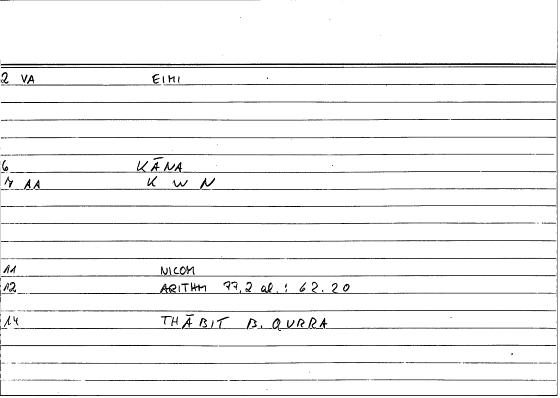 2 VA EIMI
6 KĀNA
7 AA K W N
11 NICOM
12 ARITHM 77,2 al.: 62.20
14 THĀBIT B. QURRA